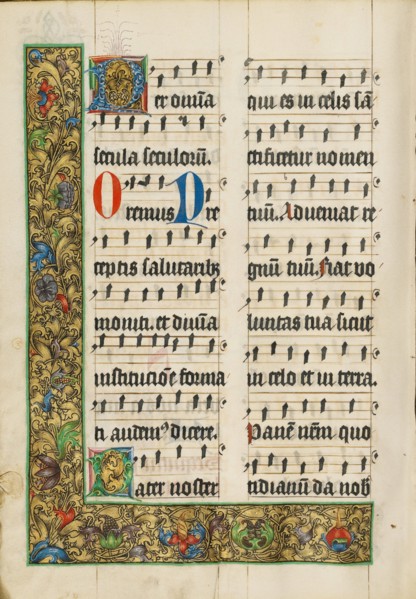 Per om̄ia
secula seculorū.
Oremus Pre
ceptis salutaribꝫ
moniti. et diuīa
institucīoe forma
ti audem⁹ dicere.
Pater noster
qui es in celis sā
ctificetur nomen
tuū. Adueniat re
gnū tuū. Fiat vo
luntas tua sicut
in celo et in terra.
Panē nr̄m quo
tidianū da nob̄